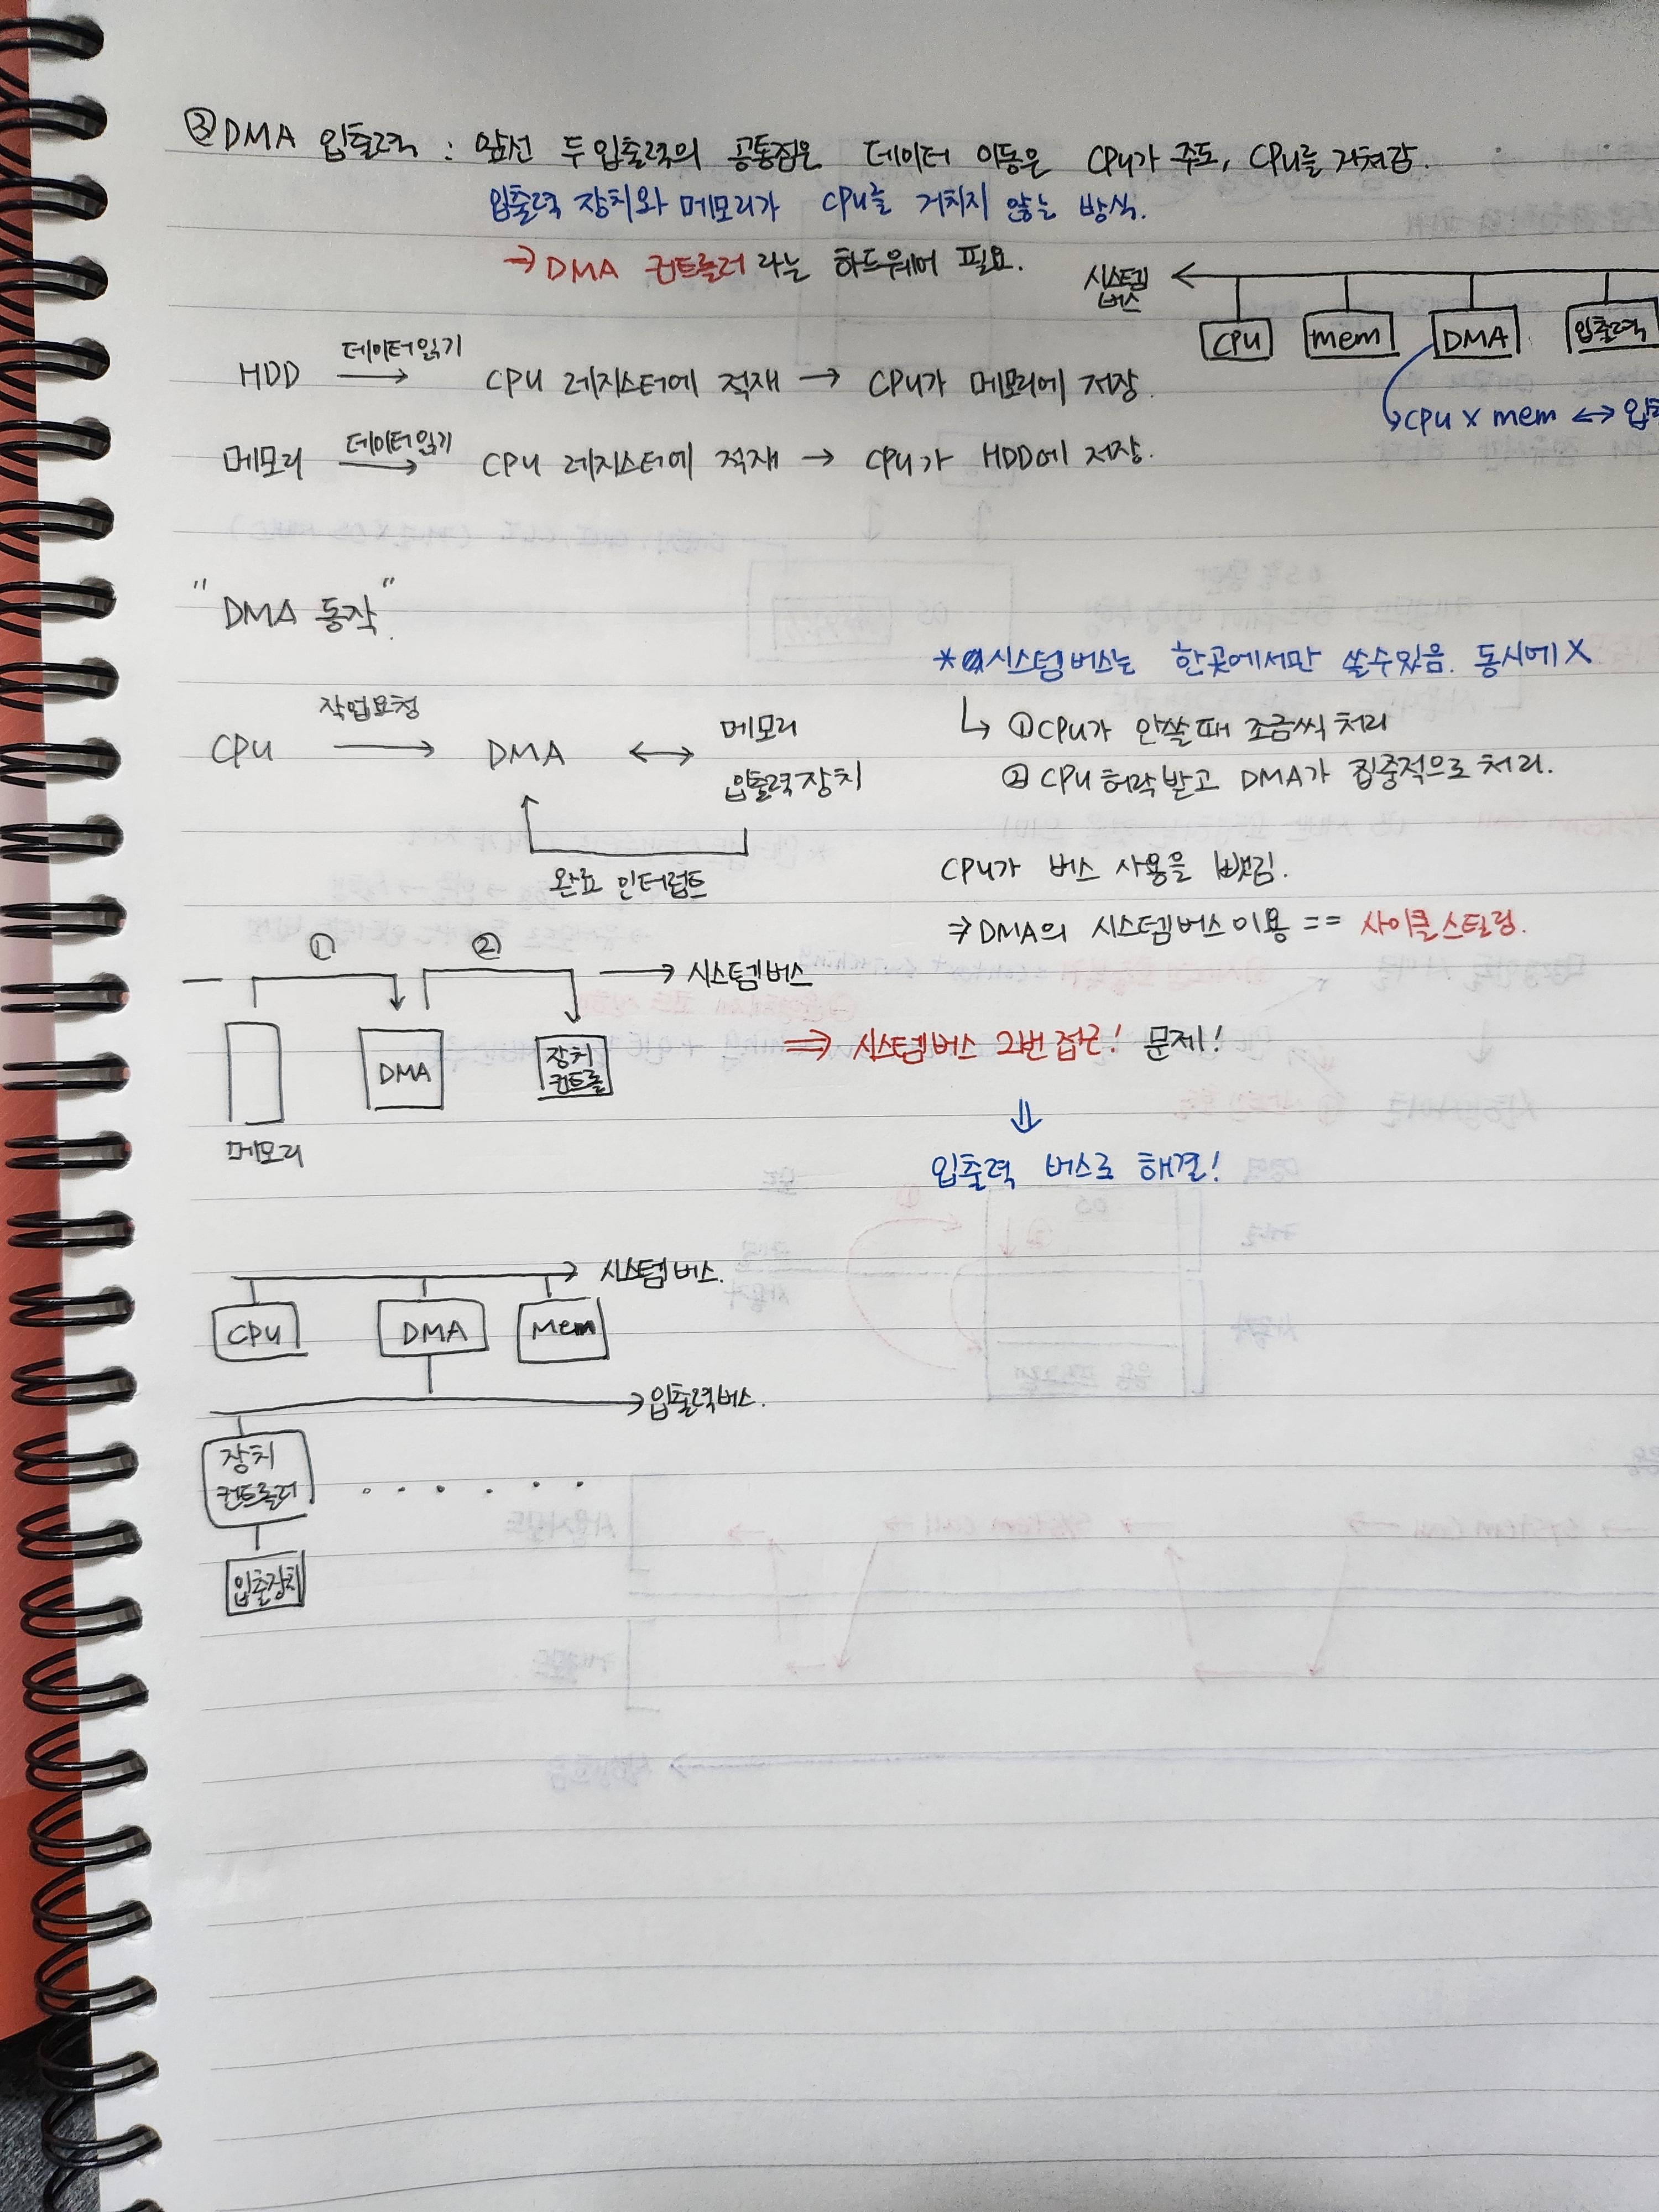 ③ DMA 입출력 : 앞선 두 입출력의 공통점은 데이터 이동은 CPU가 주도, CPU를 거쳐감.
입출력 장치와 메모리가 CPU를 거치지 않는 방식.
→ DMA 컨트롤러 라는 하드웨어 필요.
시스템
버스
CPU mem DMA 입출력
CPU X mem ↔
HDD 데이터 읽기 → CPU 레지스터에 적재 → CPU가 메모리에 저장.
메모리 데이터 읽기 → CPU 레지스터에 적재 → CPU가 HDD에 저장.
"DMA 동작"
* 시스템 버스는 한곳에서만 쓸수있음. 동시에 X
↳ ① CPU가 안쓸때 조금씩 처리
② CPU 허락 받고 DMA가 집중적으로 처리.
CPU 작업요청 → DMA ↔ 메모리
입출력장치
완료 인터럽트
CPU가 버스 사용을 뺏김.
⇒ DMA의 시스템버스 이용 == 사이클 스틸링.
① ② → 시스템버스
메모리 DMA 장치
컨트롤
⇒ 시스템버스 2번 접근! 문제!
⇓
입출력 버스로 해결!
→ 시스템 버스.
CPU DMA Mem
→ 입출력버스.
장치
컨트롤러 . . . . . .
입출장치